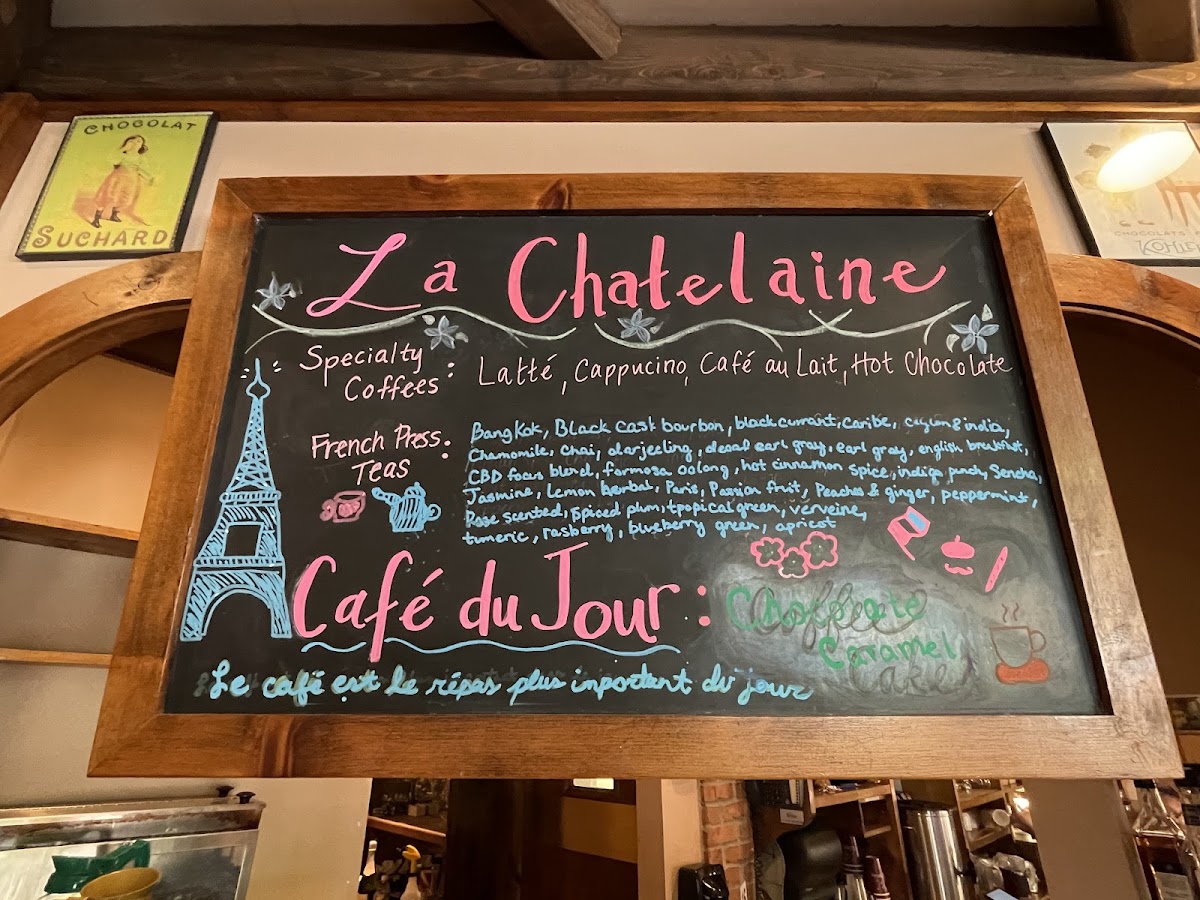 CHOCOLAT
SUCHARD
CHOCOLATS
KOHLER
La Chatelaine
Specialty Coffees : Latté, Cappucino, Café au Lait, Hot Chocolate
French Press Teas :
Bangkok, Black cask bourbon, black currant, Caribe, ceylon & india,
Chamomile, chai, darjeeling, decaf earl gray, earl gray, english breakfast,
CBD focus blend, formosa oolong, hot cinnamon spice, indigo punch, Sencha,
Jasmine, Lemon herbal, Paris, Passion fruit, Peaches & ginger, peppermint,
Rose scented, spiced plum, tropical green, verveine,
tumeric, rasberry, blueberry green, apricot
Café du Jour :
Chocolate
Caramel
Le café est le répas plus inportent du jour